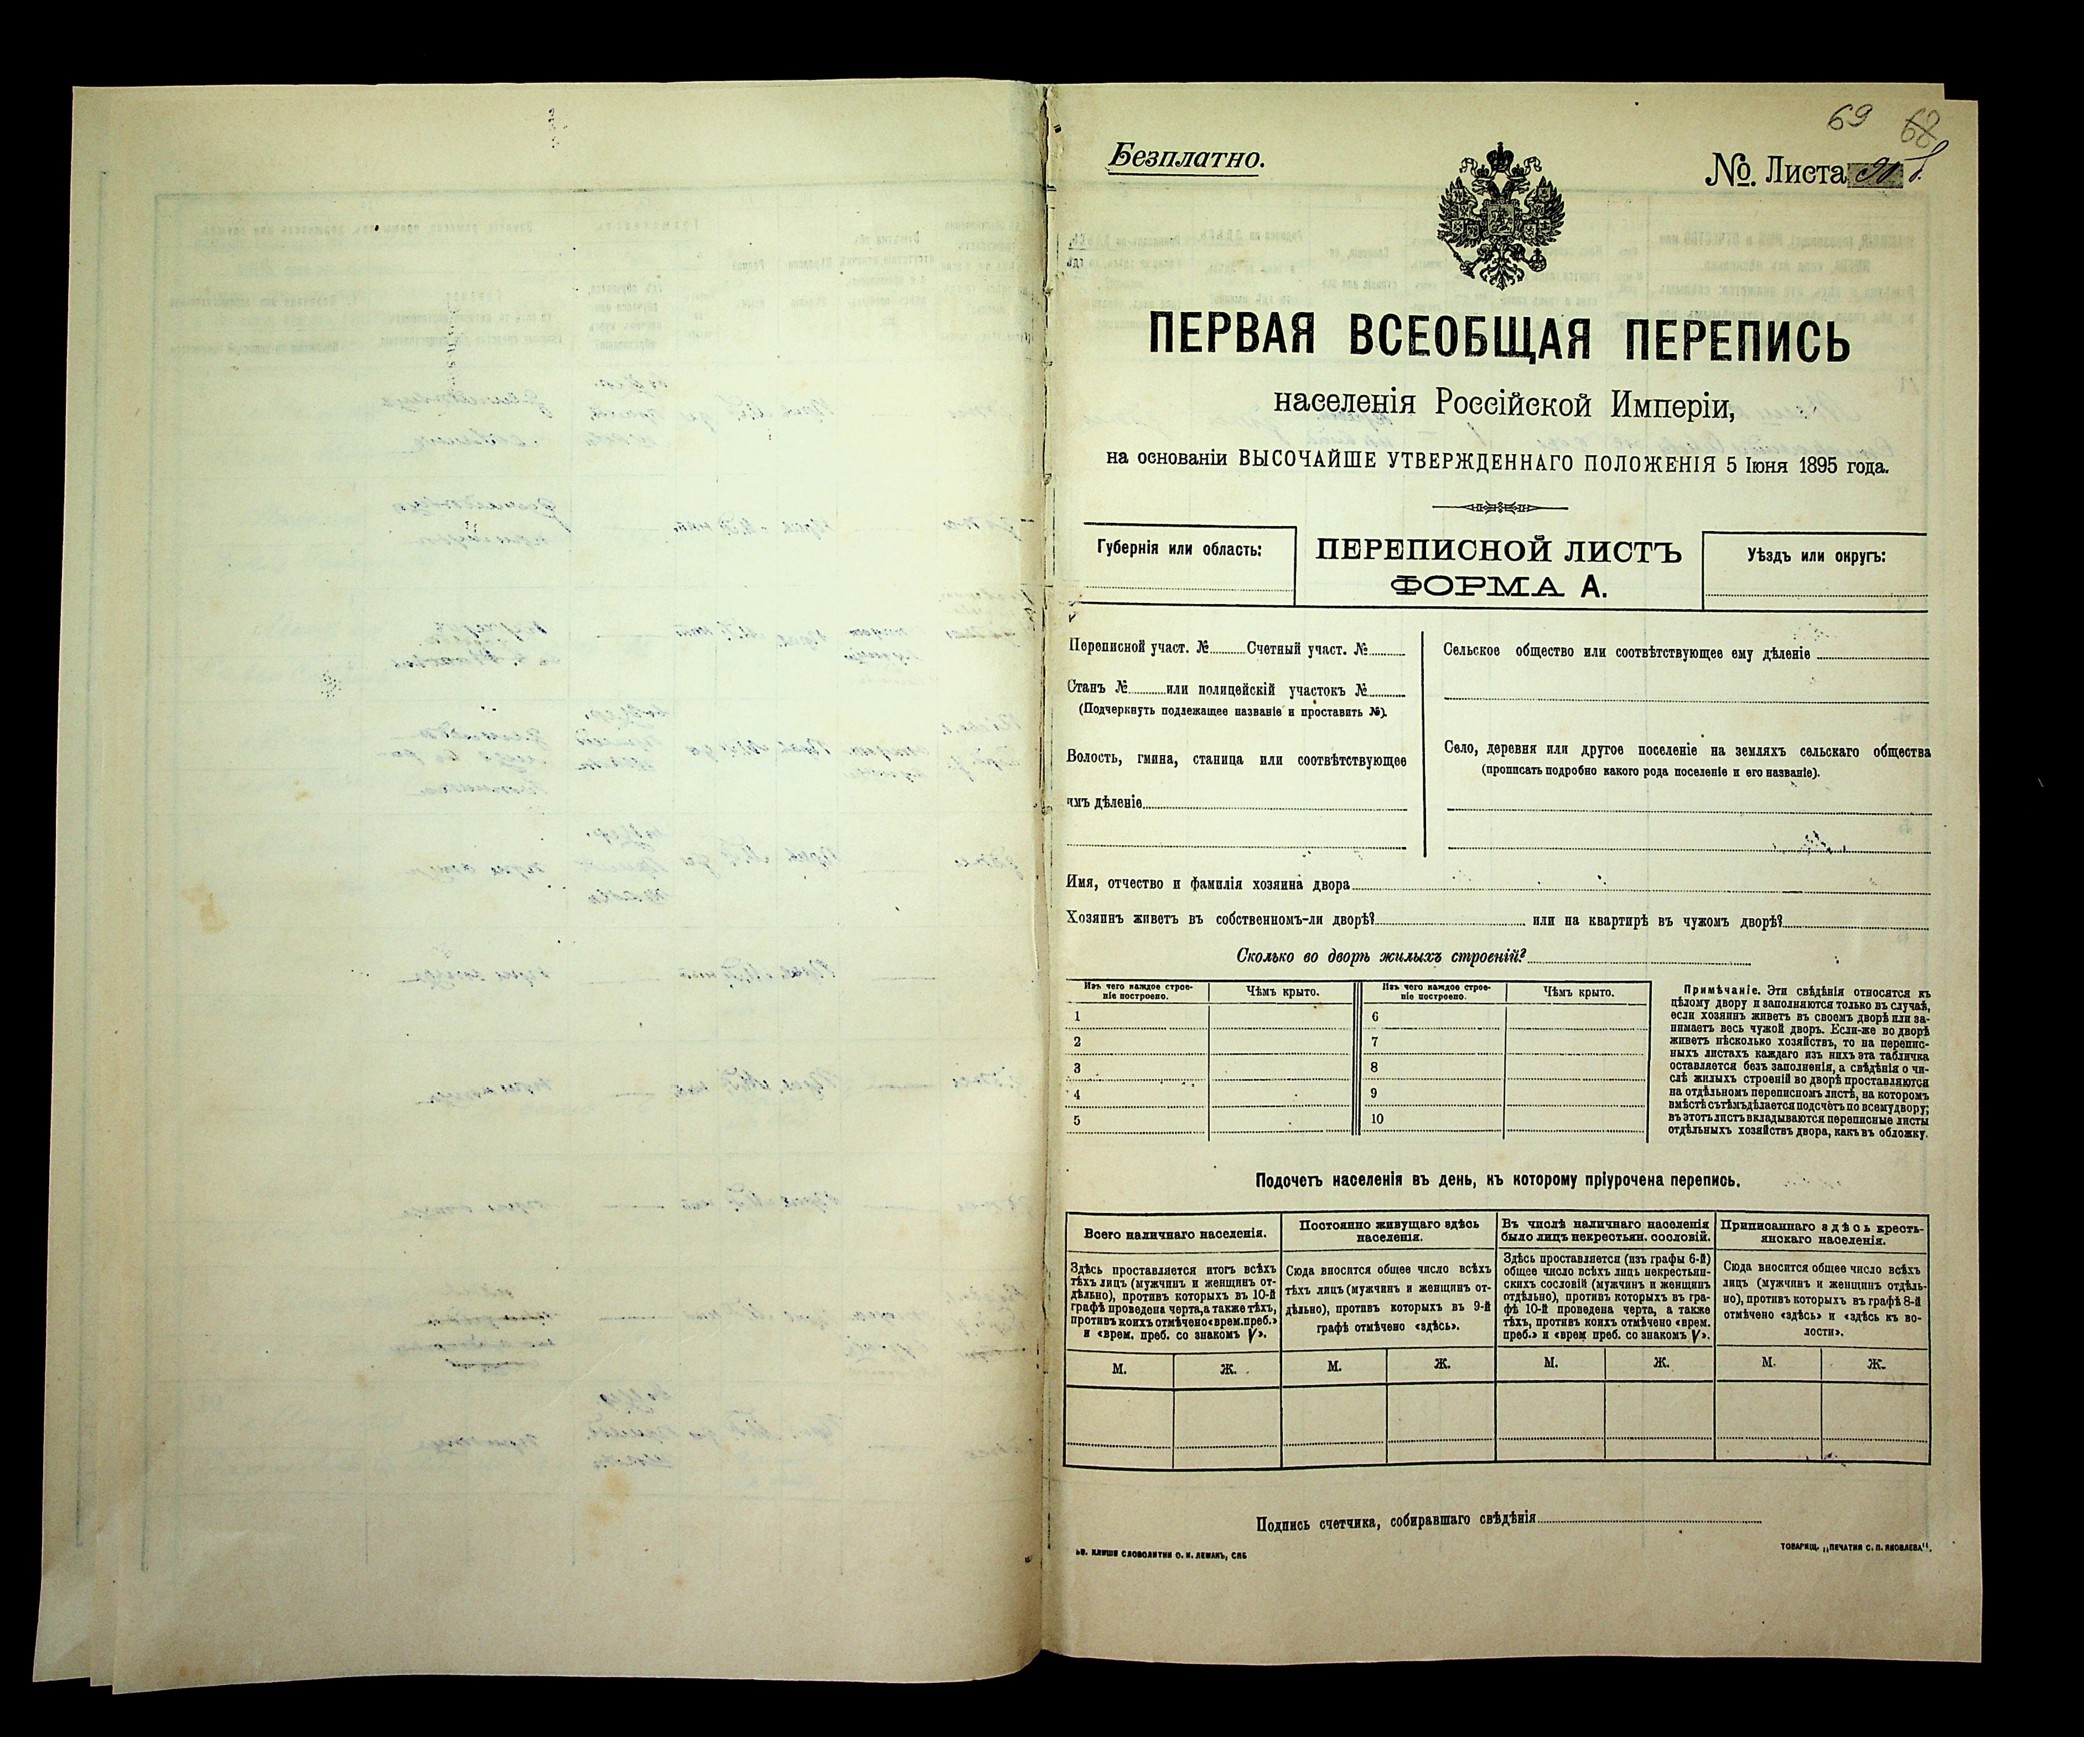 69 68
Безплатно.
№ Листа
ПЕРВАЯ ВСЕОБЩАЯ ПЕРЕПИСЬ
населенія Россійской Имперіи,
на основаніи ВЫСОЧАЙШЕ УТВЕРЖДЕННАГО ПОЛОЖЕНІЯ 5 Іюня 1895 года.
Губернія или область:
ПЕРЕПИСНОЙ ЛИСТЪ
ФОРМА А.
Уѣздъ или округъ:
Переписной участ. № Счетный участ. №
Станъ № или полицейскій участокъ №
(Подчеркнуть подлежащее названіе и проставить №).
Волость, гмина, станица или соотвѣтствующее
имъ дѣленіе
Сельское общество или соотвѣтствующее ему дѣленіе
Село, деревня или другое поселеніе на земляхъ сельскаго общества
(прописать подробно какого рода поселеніе и его названіе).
Имя, отчество и фамилія хозяина двора
Хозяинъ живетъ въ собственномъ-ли дворѣ? или на квартирѣ въ чужомъ дворѣ?
Сколько во дворѣ жилыхъ строеній?
Изъ чего каждое строе-
ніе построено.
Чѣмъ крыто.
Изъ чего каждое строе-
ніе построено.
Чѣмъ крыто.
1 6
2 7
3 8
4 9
5 10
Примѣчаніе. Эти свѣдѣнія относятся къ
цѣлому двору и заполняются только въ случаѣ,
если хозяинъ живетъ въ своемъ дворѣ или за-
нимаетъ весь чужой дворъ. Если-же во дворѣ
живетъ нѣсколько хозяйствъ, то на перепис-
ныхъ листахъ каждаго изъ нихъ эта табличка
оставляется безъ заполненія, а свѣдѣнія о чи-
слѣ жилыхъ строеній во дворѣ проставляются
на отдѣльномъ переписномъ листѣ, на которомъ
вмѣстѣ съ тѣмъ дѣлается подсчетъ по всему двору;
въ этотъ листъ вкладываются переписные листы
отдѣльныхъ хозяйствъ двора, какъ въ обложку.
Подочетъ населенія въ день, къ которому пріурочена перепись.
Всего наличнаго населенія.
Здѣсь проставляется итогъ всѣхъ
тѣхъ лицъ (мужчинъ и женщинъ от-
дѣльно), противъ которыхъ въ 10-й
графѣ проведена черта, а также тѣхъ,
противъ коихъ отмѣчено «врем. преб.»
и «врем. преб. со знакомъ V».
М. Ж.
Постоянно живущаго здѣсь
населенія.
Сюда вносится общее число всѣхъ
тѣхъ лицъ (мужчинъ и женщинъ от-
дѣльно), противъ которыхъ въ 9-й
графѣ отмѣчено «здѣсь».
М. Ж.
Въ числѣ наличнаго населенія
было лицъ некрестьян. сословій.
Здѣсь проставляется (изъ графы 6-й)
общее число всѣхъ лицъ некрестьян-
скихъ сословій (мужчинъ и женщинъ
отдѣльно), противъ которыхъ въ гра-
фѣ 10-й проведена черта, а также
тѣхъ, противъ коихъ отмѣчено «врем.
преб.» и «врем преб. со знакомъ V».
М. Ж.
Приписаннаго здѣсь кресть-
янскаго населенія.
Сюда вносится общее число всѣхъ
лицъ (мужчинъ и женщинъ отдѣль-
но), противъ которыхъ въ графѣ 8-й
отмѣчено «здѣсь» и «здѣсь къ во-
лости».
М. Ж.
Подпись счетчика, собиравшаго свѣдѣнія
КЛИШЕ СЛОВОЛИТНИ О. И. ЛЕМАНЪ, СПБ
ТОВАРИЩ. „ПЕЧАТНЯ С. П. ЯКОВЛЕВА".